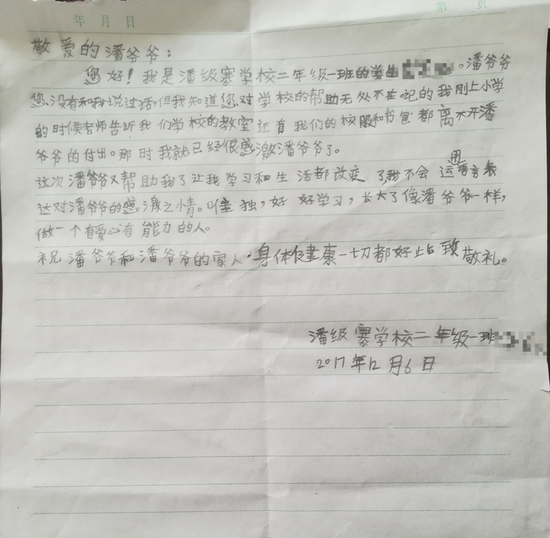 年 月 日
第 页
敬爱的潘爷爷：
您好！我是潘级寨学校二年级一班的学生 。潘爷爷
您没有和我说过话但我知道您对学校的帮助无处不在记的我刚上小学
的时候老师告诉我们学校的教室还有我们的校服和书包都离不开潘
爷爷的付出。那时我就已经很感激潘爷爷了。
这次潘爷爷又帮助我了让我学习和生活都改变了我不会运用语言表
达对潘爷爷的感激之情。唯独，好好学习，长大了像潘爷爷一样，
做一个有爱心有能力的人。
祝潘爷爷和潘爷爷的家人，身体健康一切都好 此致敬礼。
潘级寨学校二年级一班
2017年12月6日